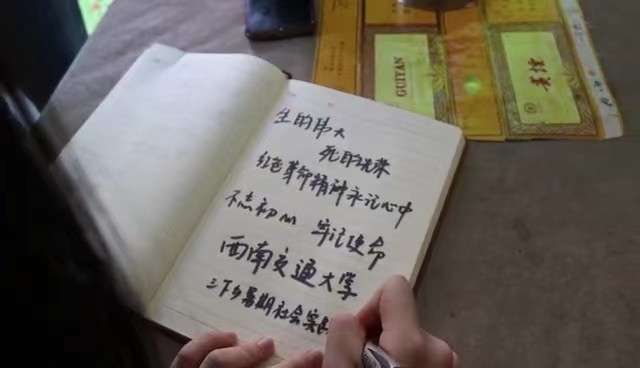 生的伟大
死的光荣
红色革命精神永记心中
不忘初心 牢记使命
西南交通大学
三下乡暑期社会实
GUIYAN